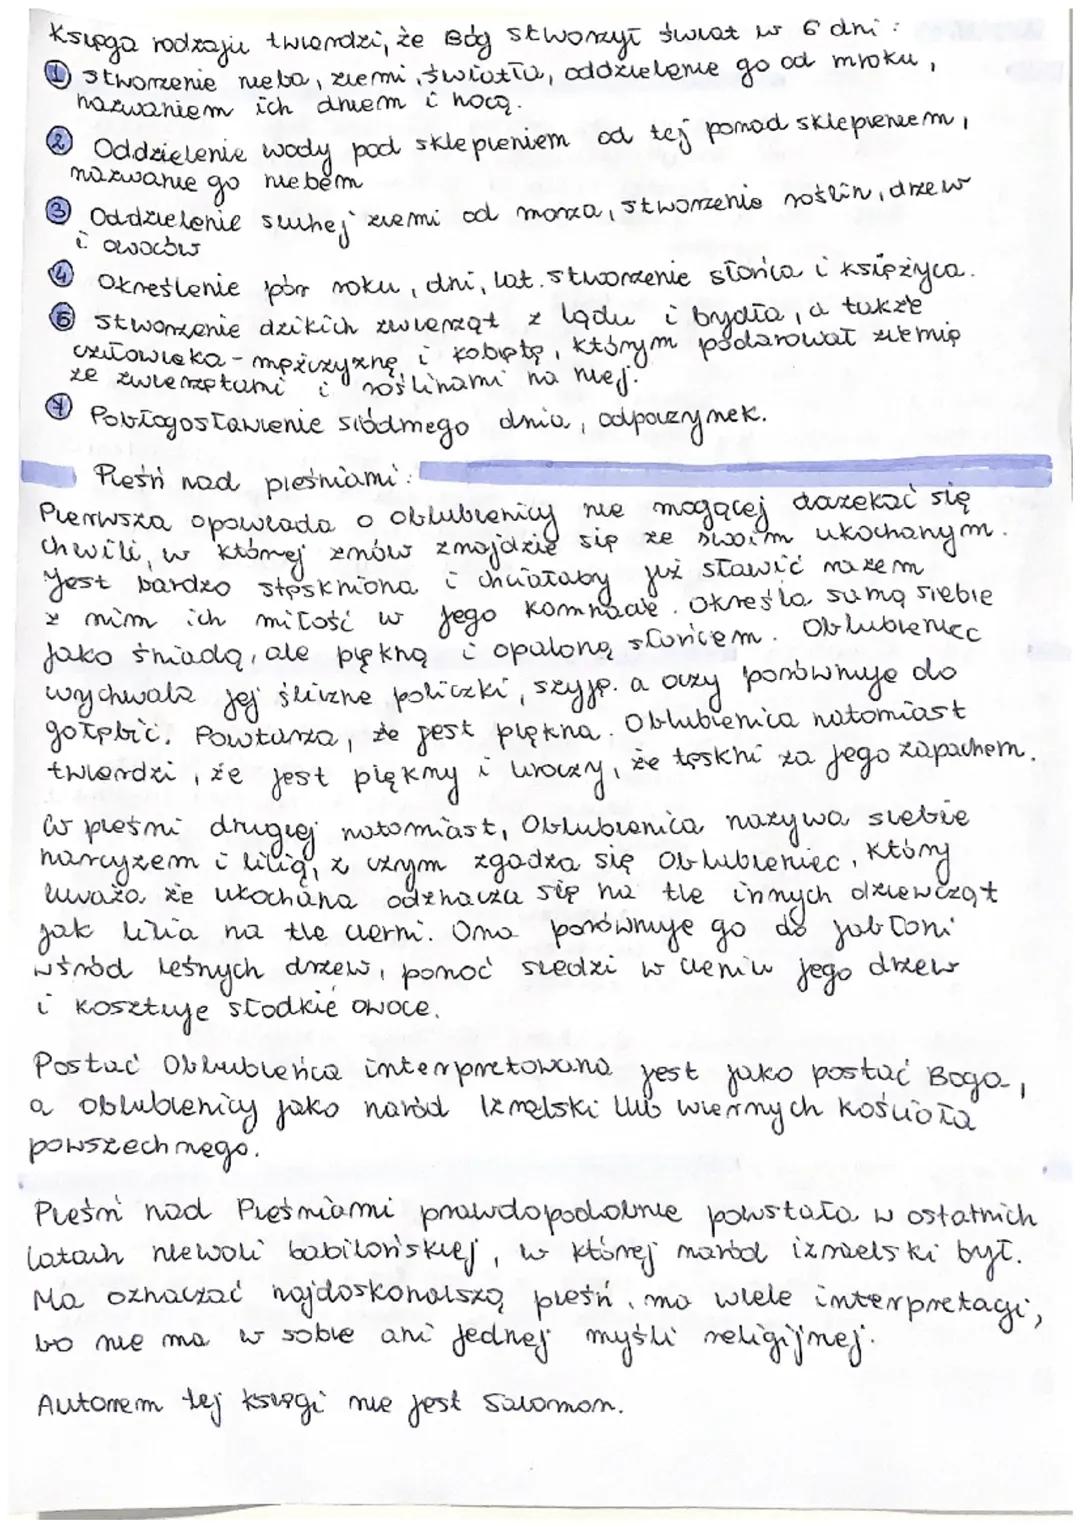 Księga rodzaju twierdzi, że Bóg stworzył świat w 6 dni:
① stworzenie nieba, ziemi, światła, oddzielenie go od mroku,
nazwaniem ich dniem i nocą.
② Oddzielenie wody pod sklepieniem od tej ponad sklepieniem,
nazwanie go niebem
③ Oddzielenie suchej ziemi od morza, stworzenie roślin, drzew
i owoców
④ Określenie pór roku, dni, lat. stworzenie słońca i księżyca.
⑥ stworzenie dzikich zwierząt z lądu i bydła, a także
człowieka - mężczyznę i kobietę, którym podarował ziemię
ze zwierzętami i roślinami na niej.
⑦ Pobłogosławienie siódmego dnia, odpoczynek.
Pieśń nad pieśniami:
Pierwsza opowiada o oblubienicy nie mogącej doczekać się
chwili, w której znów znajdzie się ze swoim ukochanym.
Jest bardzo stęskniona i chciałaby już sławić razem
z nim ich miłość w jego komnacie. Określa samą siebie
jako śniadą, ale piękną i opaloną słońcem. Oblubieniec
wychwala jej śliczne policzki, szyję. a oczy porównuje do
gołębic. Powtarza, że jest piękna. Oblubienica natomiast
twierdzi, że jest piękny i uroczy, że tęskni za jego zapachem.
W pieśni drugiej natomiast, Oblubienica nazywa siebie
narcyzem i lilią, z czym zgadza się Oblubieniec, który
uważa że ukochana odznacza się na tle innych dziewcząt
jak lilia na tle cierni. Ona porównuje go do jabłoni
wśród leśnych drzew, ponoć siedzi w cieniu jego drzew
i kosztuje słodkie owoce.
Postać Oblubieńca interpretowana jest jako postać Boga,
a oblubienicy jako naród Izraelski lub wiernych kościoła
powszechnego.
Pieśń nad Pieśniami prawdopodobnie powstała w ostatnich
latach niewoli babilońskiej, w której naród izraelski był.
Ma oznaczać najdoskonalszą pieśń, ma wiele interpretacji,
bo nie ma w sobie ani jednej myśli religijnej.
Autorem tej księgi nie jest Salomon.